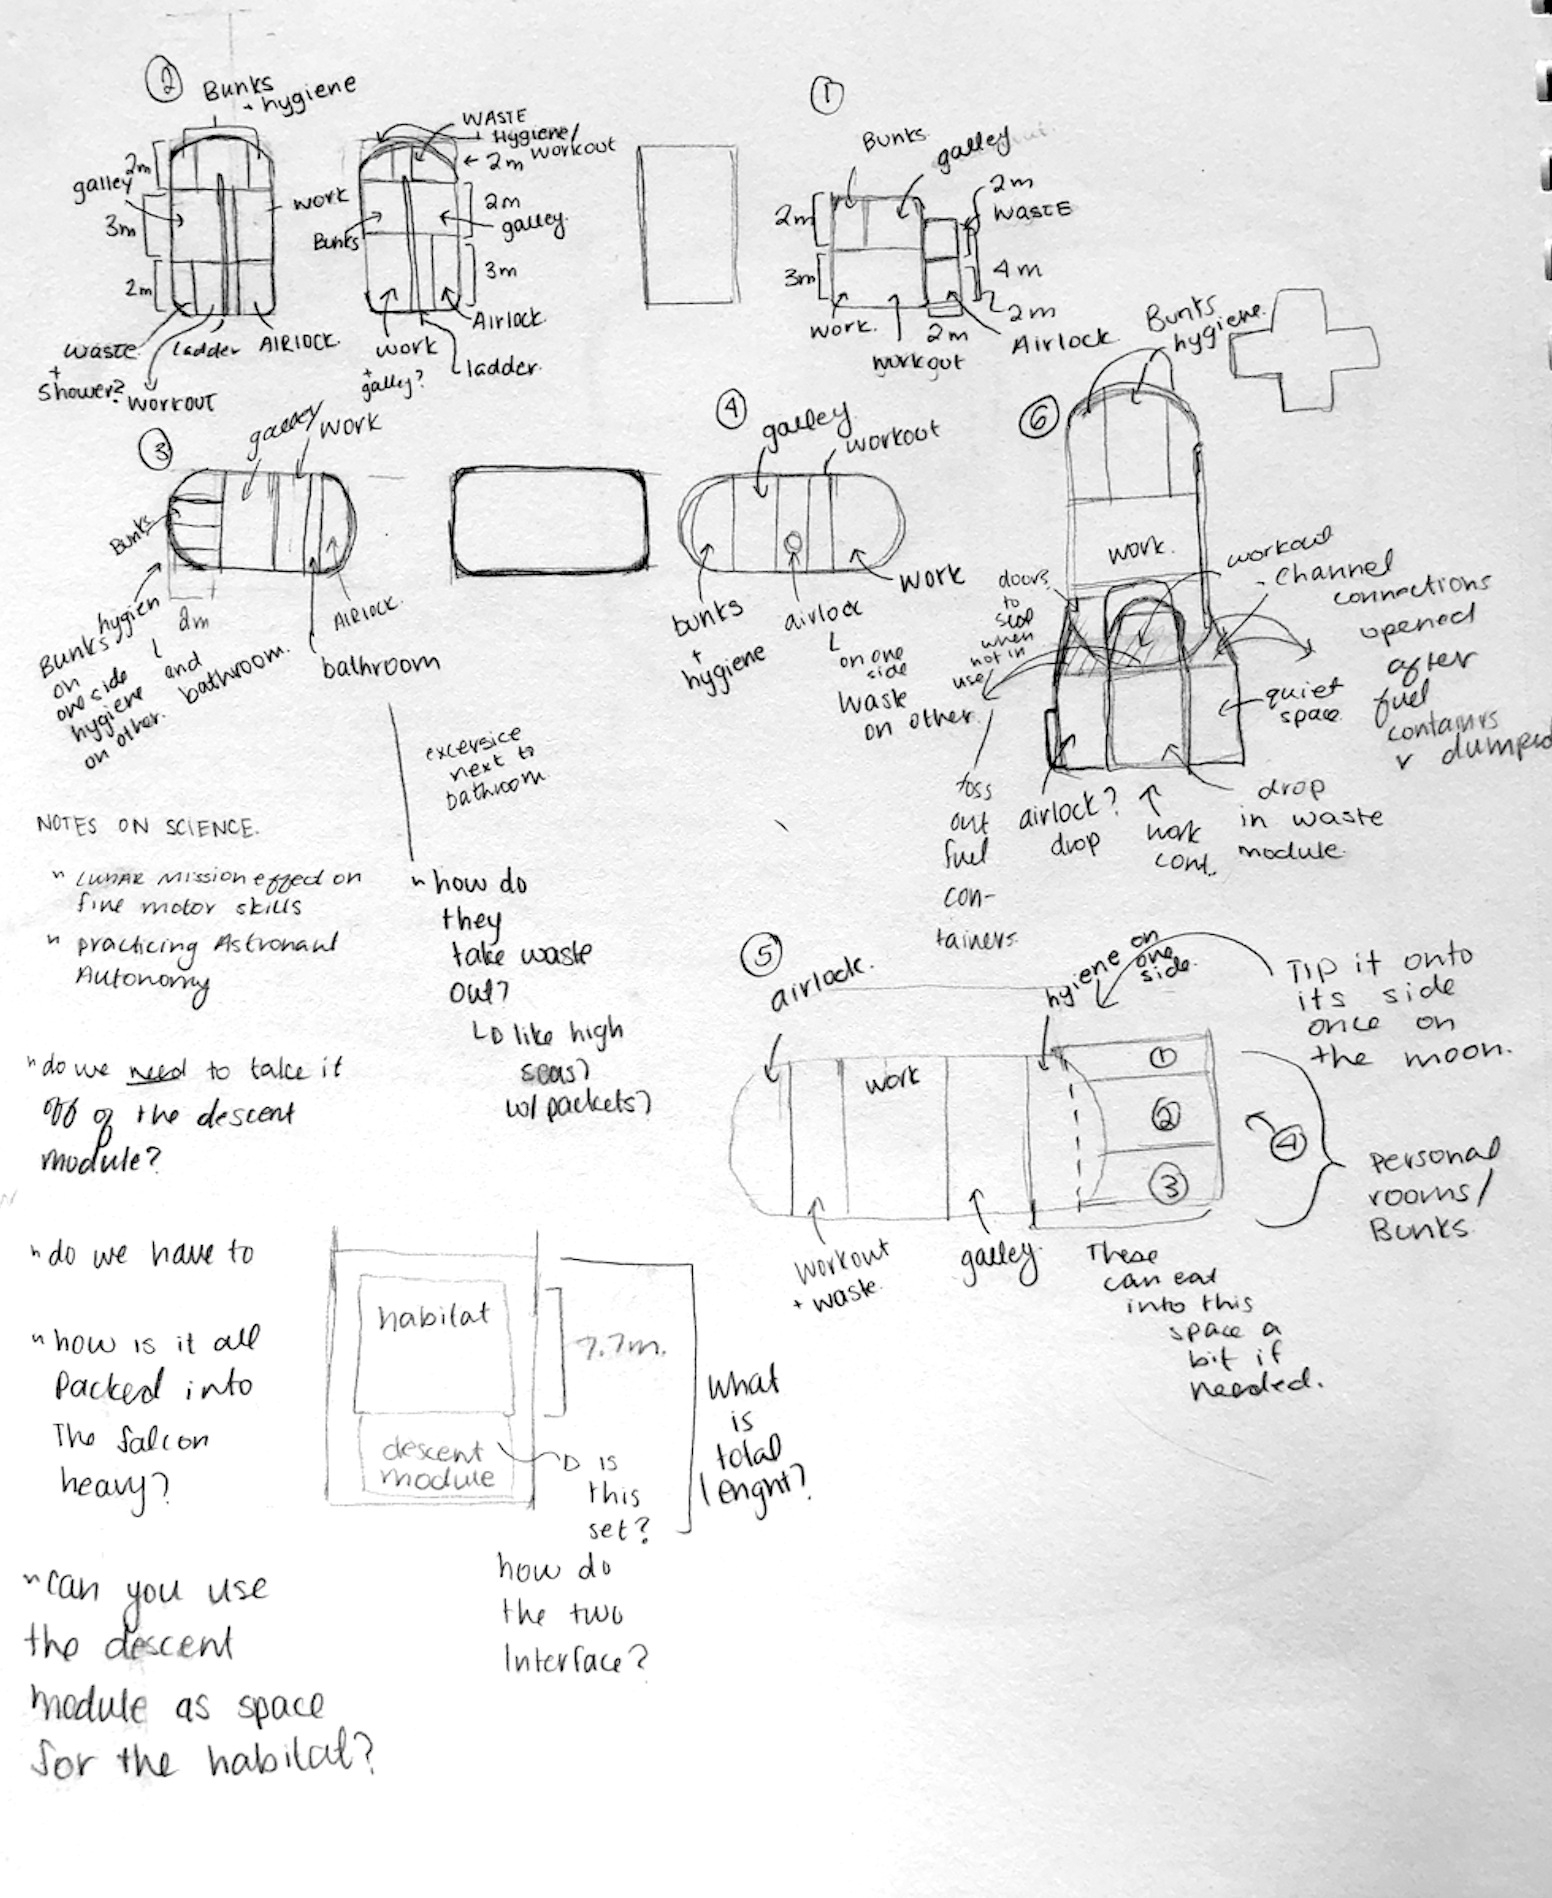 ②
Bunks
+ hygiene
2m
galley
3m
2m
work
waste
+
shower?
Ladder
AIRLOCK.
WORKOUT
WASTE
+ Hygiene/
workout
← 2m
2m
galley.
Bunks
3m
Airlock.
work
+
galley?
ladder.
①
Bunks.
galley
2m
WASTE
2m
3m
4m
2m
work.
2m
workout
Airlock
③
galley
work
Bunks
hygien
2m
AIRLOCK.
bathroom
Bunks
on
one side
hygiene
on other.
and
bathroom.
④
galley
workout
bunks
+
hygiene
airlock
on one
side
waste
on other.
work
⑥
Bunks
hygiene.
work.
workout
channel
connections
opened
after
fuel
containrs
r dumped
doors
to
seal
when
not in
use
quiet
space
toss
out
fuel
con-
tainers.
airlock?
drop
work
cont.
drop
in waste
module.
excersice
next to
bathroom
NOTES ON SCIENCE.
" LUNAR Mission effect on
fine motor skills
" practicing Astronaut
Autonomy
" how do
they
take waste
out?
like high
seas?
w/ packets?
" do we need to take it
off of the descent
module?
" do we have to
" how is it all
packed into
The falcon
heavy?
" can you use
the descent
module as space
for the habitat?
habitat
7.7m.
descent
module
is
this
set?
how do
the two
Interface?
what
is
total
lenght?
⑤
airlock.
hygiene on
one
side.
Tip it onto
its side
once on
the moon.
work
①
②
③
④
personal
rooms/
Bunks
workout
+ waste.
galley.
These
can eat
into this
space a
bit if
needed.